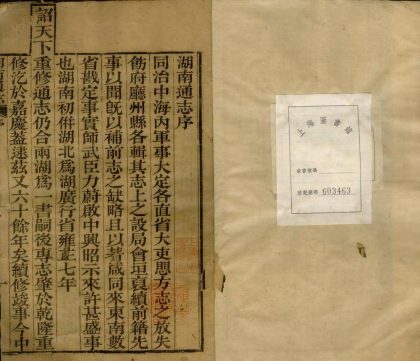 湖南通志序
同治中海內軍事大定各直省大吏愳方志之放失
飭府廳州縣各輯其志上之設局會垣裒續前籍先
事以聞旣以補前志之缺略且以著咸同來東南數
省戡定事實師武臣力蔚啟中興昭示來許甚盛事
也湖南初併湖北爲湖廣行省雍正七年
詔天下重修通志仍合兩湖爲一書嗣後專志肇於乾隆重
修汔於嘉慶蓋逮茲又六十餘年矣續修竣事今中
603463